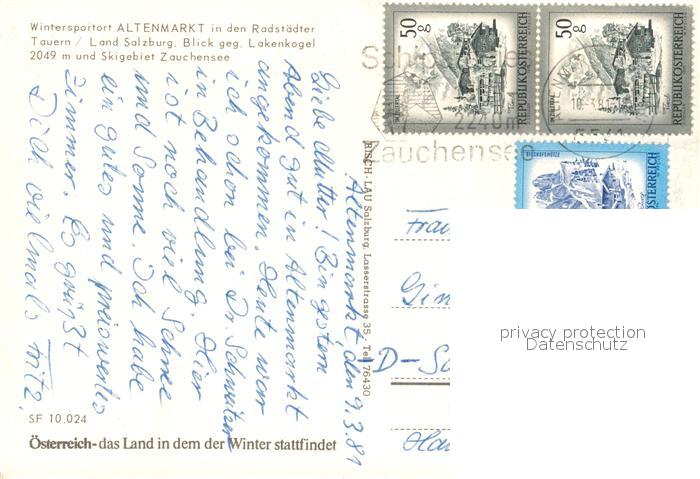 Wintersportort ALTENMARKT in den Radstädter
Tauern / Land Salzburg. Blick geg. Lakenkogel
2049 m und Skigebiet Zauchensee
Altenmarkt, den 9.3.81
Liebe Mutter! Bin gestern
Abend gut in Altenmarkt
angekommen. Heute war
ich schon bei Dr. Schweitzer
in Behandlung. Hier
ist noch viel Schnee
und Sonne. Ich habe
ein gutes und preiswertes
Zimmer. Es grüßt
Dich vielmals Fritz.
SF 10.024
Österreich-das Land in dem der Winter stattfindet
RISCH-LAU Salzburg, Lasserstrasse 35 Tel 76430
50 g
REPUBLIK ÖSTERREICH
50 g
REPUBLIK ÖSTERREICH
BISCHOFSMÜTZE
ÖSTERREICH
Zauchensee
10.3.81
Frau
Gin
D-Sc
Hau
privacy protection
Datenschutz